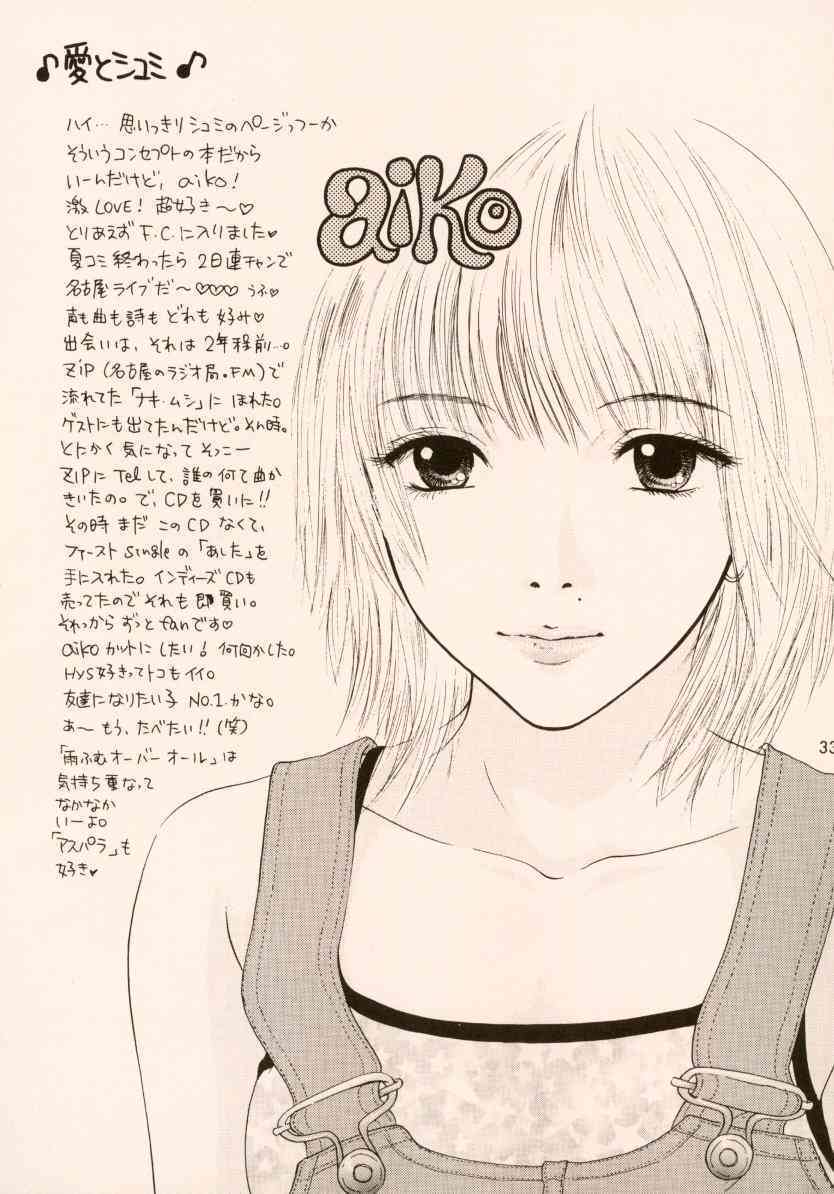 ♪愛とシュミ♪
ハイ… 思いっきりシュミのページっつーか
そういうコンセプトの本だから
いーんだけど, aiko!
激LOVE! 超好き〜♡
とりあえず F.C.に入りました♥
夏コミ終わったら 2日連チャンで
名古屋ライブだ〜♡♡♡ うふ♥
声も曲も詩も どれも 好み♡
出会いは、それは 2年程前…。
ZiP (名古屋のラジオ局.FM)で
流れてた 「ナキ・ムシ」に ほれた。
ゲストにも出てたんだけど。そん時。
とにかく 気になって そっこー
ZIPに Telして、誰の何て曲か
きいたの。で、CDを買いに!!
その時 まだ この CD なくて、
ファースト Singleの 「あした」を
手に入れた。インディーズCDも
売ってたので それも 即買い。
それっから ずっと fanです♡
aikoカットに したい! 何回かした。
HYS好きってトコも イイ。
友達になりたい子 NO.1.かな。
あ〜 もう、たべたい!! (笑)
「雨ふむオーバーオール」は
気持ち重なって
なかなか
いーよ。
「アスパラ」も
好き♥
aiko
33